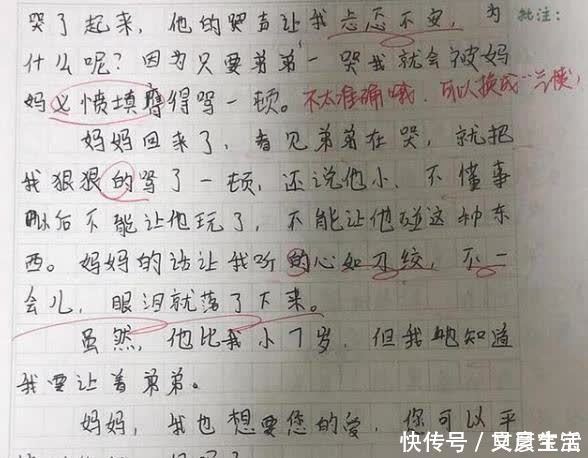 哭了起来，他的哭声让我忐忑不安，为
批注：
什么呢？因为只要弟弟一哭我就会被妈
妈义愤填膺得骂一顿。不太准确哦，可以换成"
妈妈回来了，看见弟弟在哭，就把
我狠狠的骂了一顿，还说他小，不懂事
以后不能让他玩了，不能让他碰这种东
西。妈妈的话让我听的心如刀绞，不一
会儿，眼泪就落了下来。
虽然，他比我小7岁，但我也知道
我要让着弟弟。
妈妈，我也想要您的爱，您可以平
快传号／